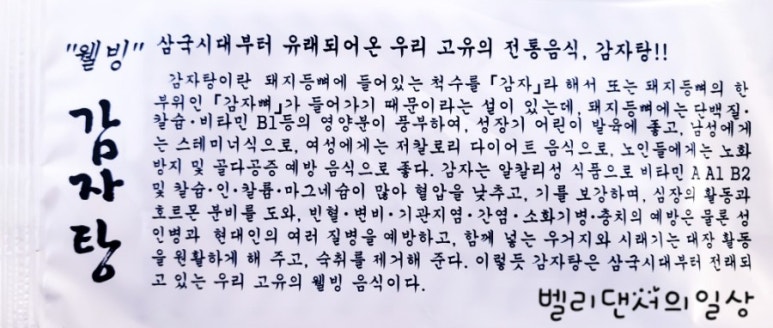 "웰빙"
감자탕
삼국시대부터 유래되어온 우리 고유의 전통음식, 감자탕!!
감자탕이란 돼지등뼈에 들어있는 척수를 「감자」라 해서 또는 돼지등뼈의 한
부위인 「감자뼈」가 들어가기 때문이라는 설이 있는데, 돼지등뼈에는 단백질·
칼슘·비타민 B1등의 영양분이 풍부하여, 성장기 어린이 발육에 좋고, 남성에게
는 스테미너식으로, 여성에게는 저칼로리 다이어트 음식으로, 노인들에게는 노화
방지 및 골다공증 예방 음식으로 좋다. 감자는 알칼리성 식품으로 비타민 A A1 B2
및 칼슘·인·칼륨·마그네슘이 많아 혈압을 낮추고, 기를 보강하며, 심장의 활동과
호르몬 분비를 도와, 빈혈·변비·기관지염·간염·소화기병·충치의 예방은 물론 성
인병과 현대인의 여러 질병을 예방하고, 함께 넣는 우거지와 시래기는 대장 활동
을 원활하게 해 주고, 숙취를 제거해 준다. 이렇듯 감자탕은 삼국시대부터 전래되
고 있는 우리 고유의 웰빙 음식이다.
벨리댄서의일상